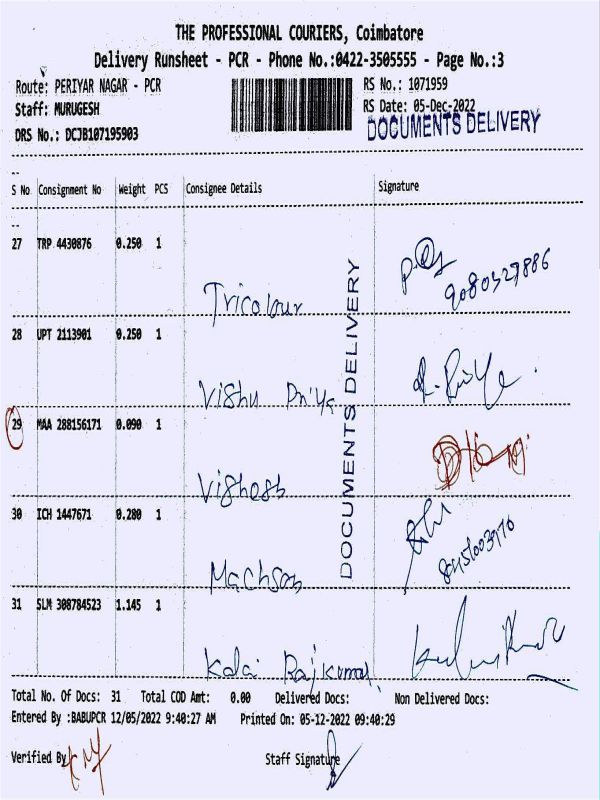 THE PROFESSIONAL COURIERS, Coimbatore
Delivery Runsheet - PCR - Phone No.:0422-3505555 - Page No.:3
Route: PERIYAR NAGAR - PCR
RS No.: 1071959
Staff: MURUGESH
RS Date: 05-Dec-2022
DRS No.: DCJB107195903
DOCUMENTS DELIVERY
S No Consignment No Weight PCS Consignee Details Signature
27 TRP 4430876 0.250 1
Tricolour
28 UPT 2113901 0.250 1
Vishu Priya
29 MAA 288156171 0.090 1
Vighesh
30 ICH 1447671 0.280 1
31 SLM 308784523 1.145 1
Kalai Rajkumar
DOCUMENTS DELIVERY
Total No. Of Docs: 31 Total COD Amt: 0.00 Delivered Docs: Non Delivered Docs:
Entered By :BABUPCR 12/05/2022 9:40:27 AM Printed On: 05-12-2022 09:40:29
Verified By
Staff Signature